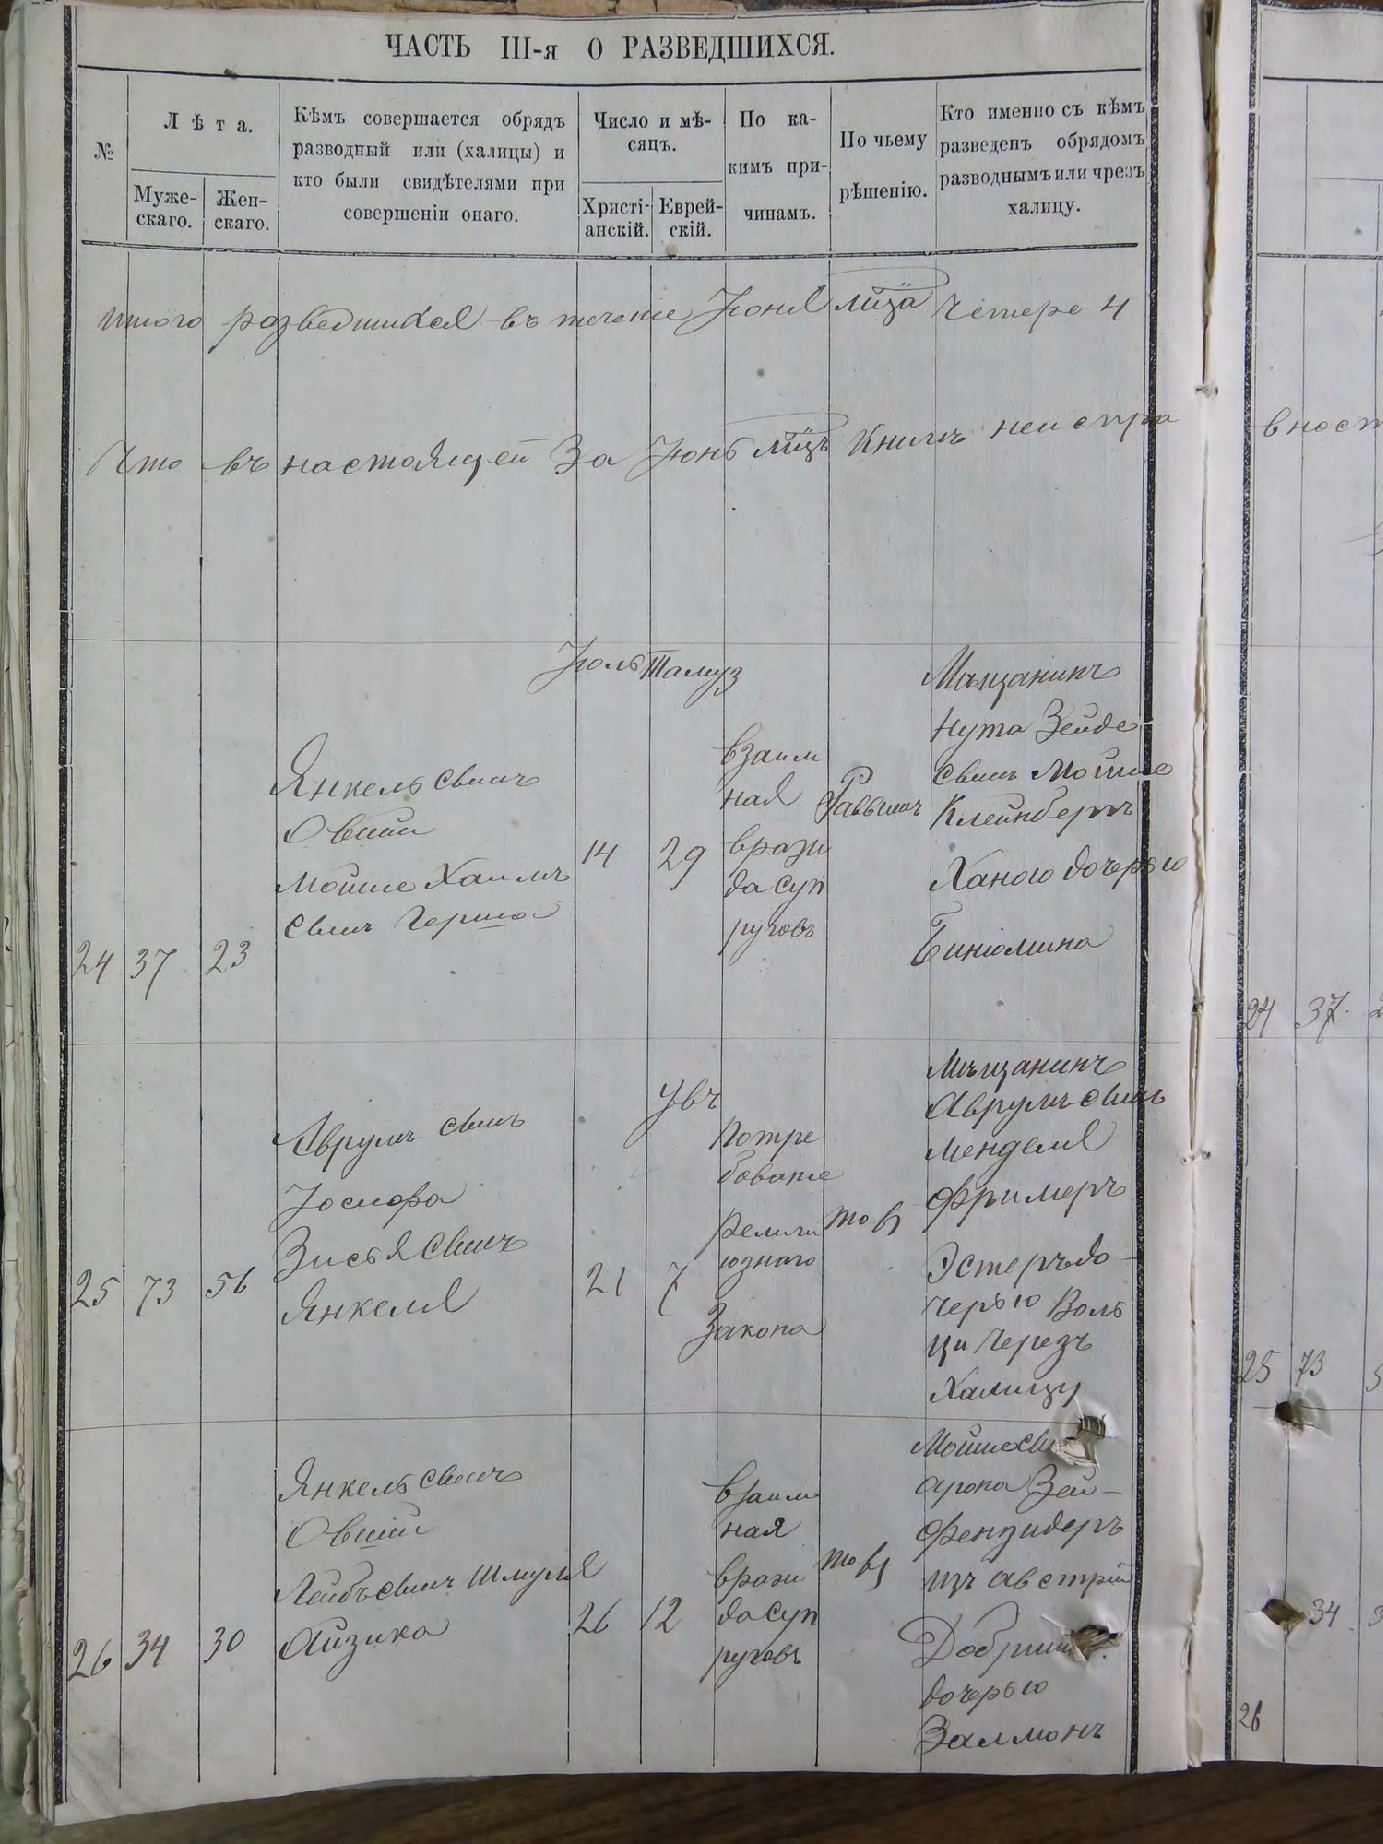 ЧАСТЬ III-я О РАЗВЕДШИХСЯ.
№
Лѣта.
Муже-
скаго.
Жен-
скаго.
Кѣмъ совершается обрядъ
разводный или (халицы) и
кто были свидѣтелями при
совершеніи онаго.
Число и мѣ-
сяцъ.
Христі-
анскій.
Еврей-
скій.
По ка-
кимъ при-
чинамъ.
По чьему
рѣшенію.
Кто именно съ кѣмъ
разведенъ обрядомъ
разводнымъ или чрезъ
халицу.
итого разведшихся въ теченіе Іюня мѣца четере 4
Что въ настоящей За Іюнь мѣцъ книгѣ неиспра
вност
Іюль Тамуз
24 37 23
Янкель свинъ
Овшии
Мойше Хаимъ
свинъ Герша
14 29
взаим
ная
вражи
да суп
руговъ
Раввинъ
Мѣщанинъ
Нута Зейде
свинъ Мойше
Клейнберъ
Ханою дочерью
Бинюмина
24 37
25 73 56
Аврумъ свинъ
Іосифа
Зисья свинъ
Янкеля
21 7
Увъ
Потре
бованіе
религи
ознаго
Закона
тоВ
Мѣщанинъ
Аврумъ свинъ
Менделя
Фримеръ
Эстеръ до-
черью Воль
ци черезъ
Халицу
25 73
26 34 30
Янкель свинъ
Овшии
Лейбъ свинъ Шмуля
Айзика
26 12
взаим
ная
вражи
да суп
руговъ
тоВ
Мойше сви
Арона Зей-
фензидеръ
изъ австрій
Добриш
дочерью
Залмонъ
34
26